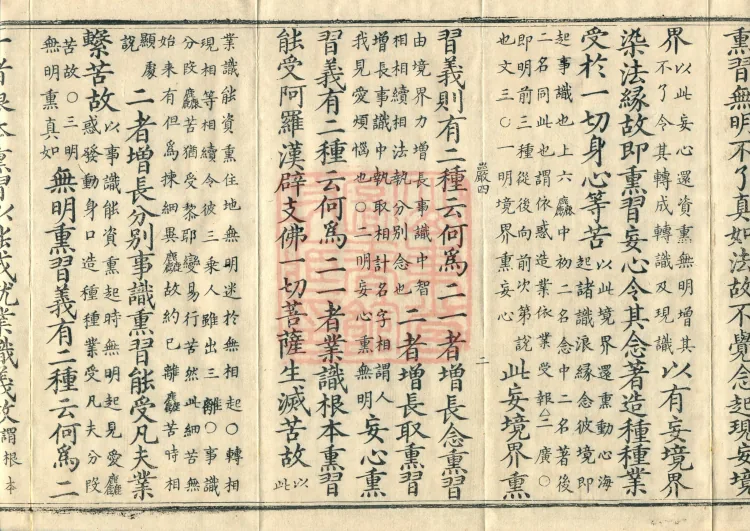 熏習無明不了真如法故不覺念起現妄境
界以此妄心還資熏無明增其
不了令其轉成轉識及現識以有妄境界
染法緣故即熏習妄心令其念著造種種業
受於一切身心等苦以此境界還熏動心海
起諸識浪緣念彼境即
起事識也上六麤中初二名念中二名著後
二名同此也謂依惑造業依業受報△二廣〇
即明前三種從後向前次第說
也文三〇一明境界熏妄心此妄境界熏
巖四
二
習義則有二種云何爲二一者增長念熏習
由境界力增長事識中智
相相續相法執分別念也二者增長取熏習
增長事識中執取相計名字相謂人
我見愛煩惱也〇二明妄心熏無明妄心熏
習義有二種云何爲二一者業識根本熏習
能受阿羅漢辟支佛一切菩薩生滅苦故以
此
業識能資熏住地無明迷於無相起〇轉相
現相等相續令彼三乘人雖出三離〇事識
分段麤苦猶受黎耶變易行苦然此細苦無
始來有但爲揀細異麤故約已離麤苦時相
顯處
說二者增長分別事識熏習能受凡夫業
繫苦故以事識能資熏起時無明起見愛麤
惑發動身口造種種業受凡夫分段
苦故〇三明
無明熏真如無明熏習義有二種云何爲二
一者根本熏習以能成就業識義故謂根本